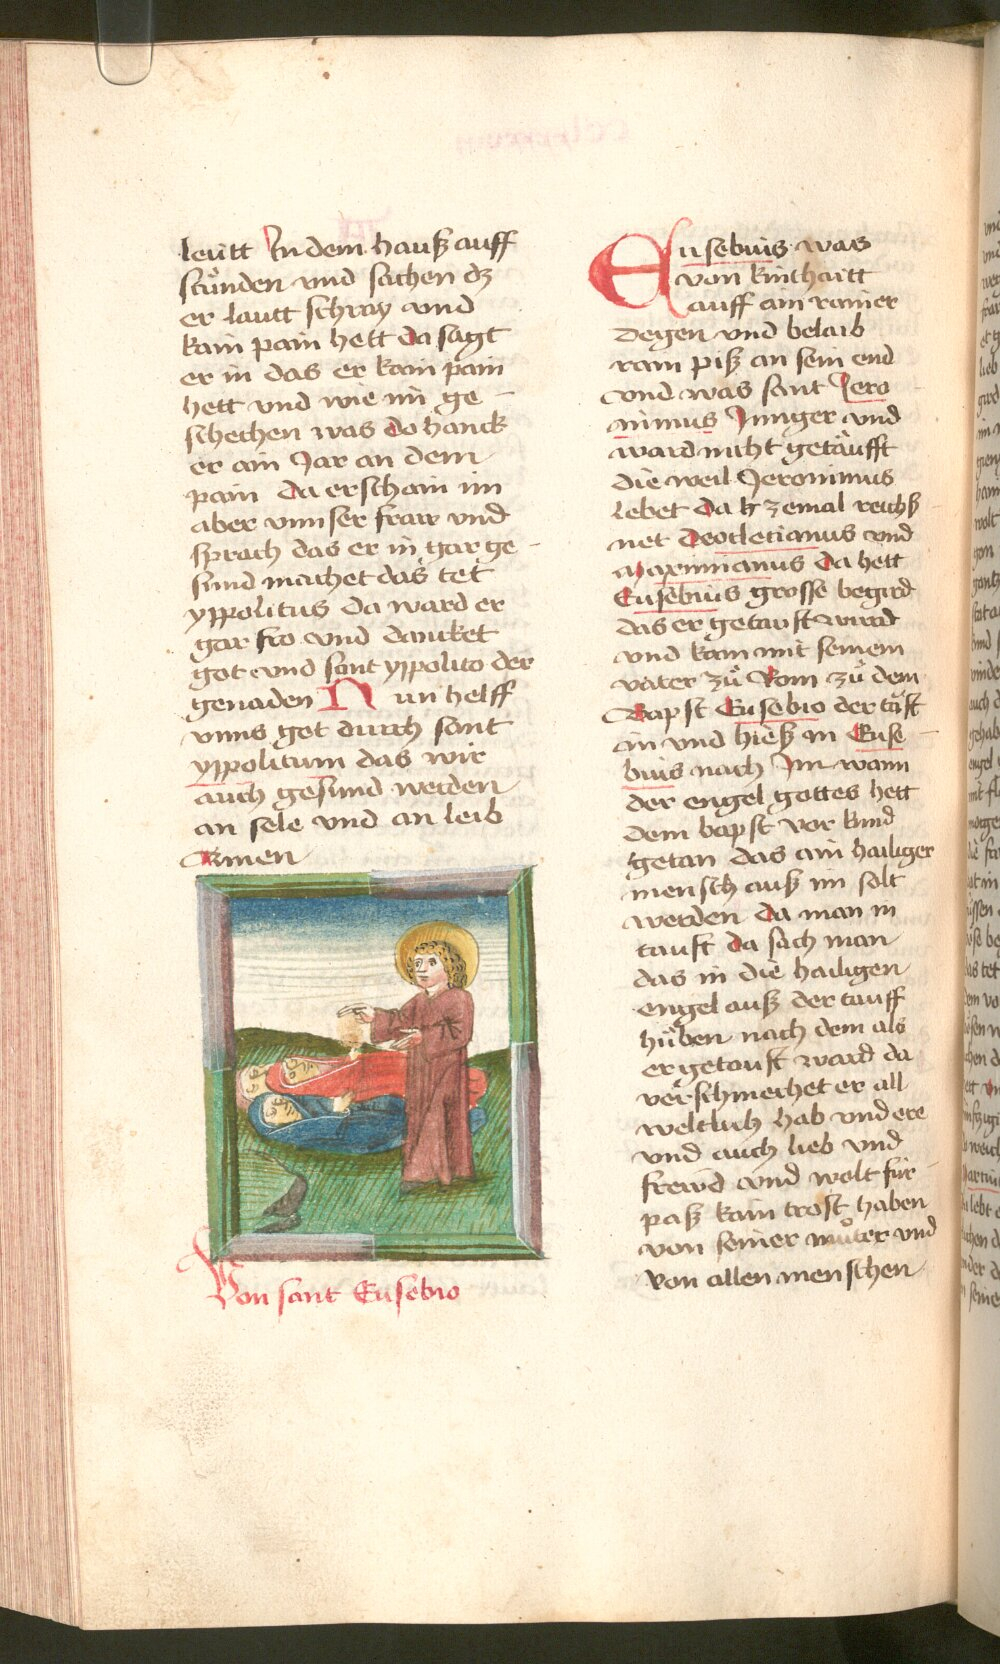 leütt In dem hauß auff
stuͦnden vnd sachen dz
er lautt schray vnd
kain pain hett da sagt
er in das er kain pain
hett vnd wie im ge-
schechen was do hanck
er ain Jar an dem
pain da erschain im
aber vnnser fraw vnd
sprach das er in gar ge-
sund machet das tet
yppolitus da ward er
gar fro vnd dancket
got vnd sant yppolito der
genaden Nun helff
vnns got durch sant
yppolitum das wir
auch gesund werden
an sele vnd an leib
Amen
Von sant Eusebio
Eusebius was
von kinthaitt
auff ain rainer
degen vnd belaib
rain piß an sein end
vnd was sant Jero
nimus Junger vnd
ward nicht getäufft
die weil Jeronimus
lebet da zemal reichß
net Deocletianus vnd
Maximianus da hett
Eusebius grosse begird
das er getauft wurd
vnd kam mit seinem
vater zuͦ Rom zuͦ dem
Bapst Eusebio der tåft
in vnd hieß in Euse-
bius nach Im wann
der engel gottes hett
dem bapst vor kund
getan das ain hailiger
mensch auß im solt
werden da man in
tauft da sach man
das in die hailigen
engel auß der tauff
huͦben nach dem als
er getauft ward da
verschmechet er all
weltlich hab vnd ere
vnd auch lieb vnd
frewd vnd wolt für
paß kain trost haben
von seiner muͦter vnd
von allen menschen